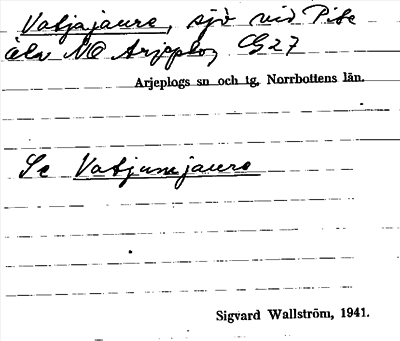 Vatjajaure, sjö vid Pite
älv NO Arjeplog G27
Arjeplogs sn och tg, Norrbottens län.
Se Vatjumjaure
Sigvard Wallström, 1941.